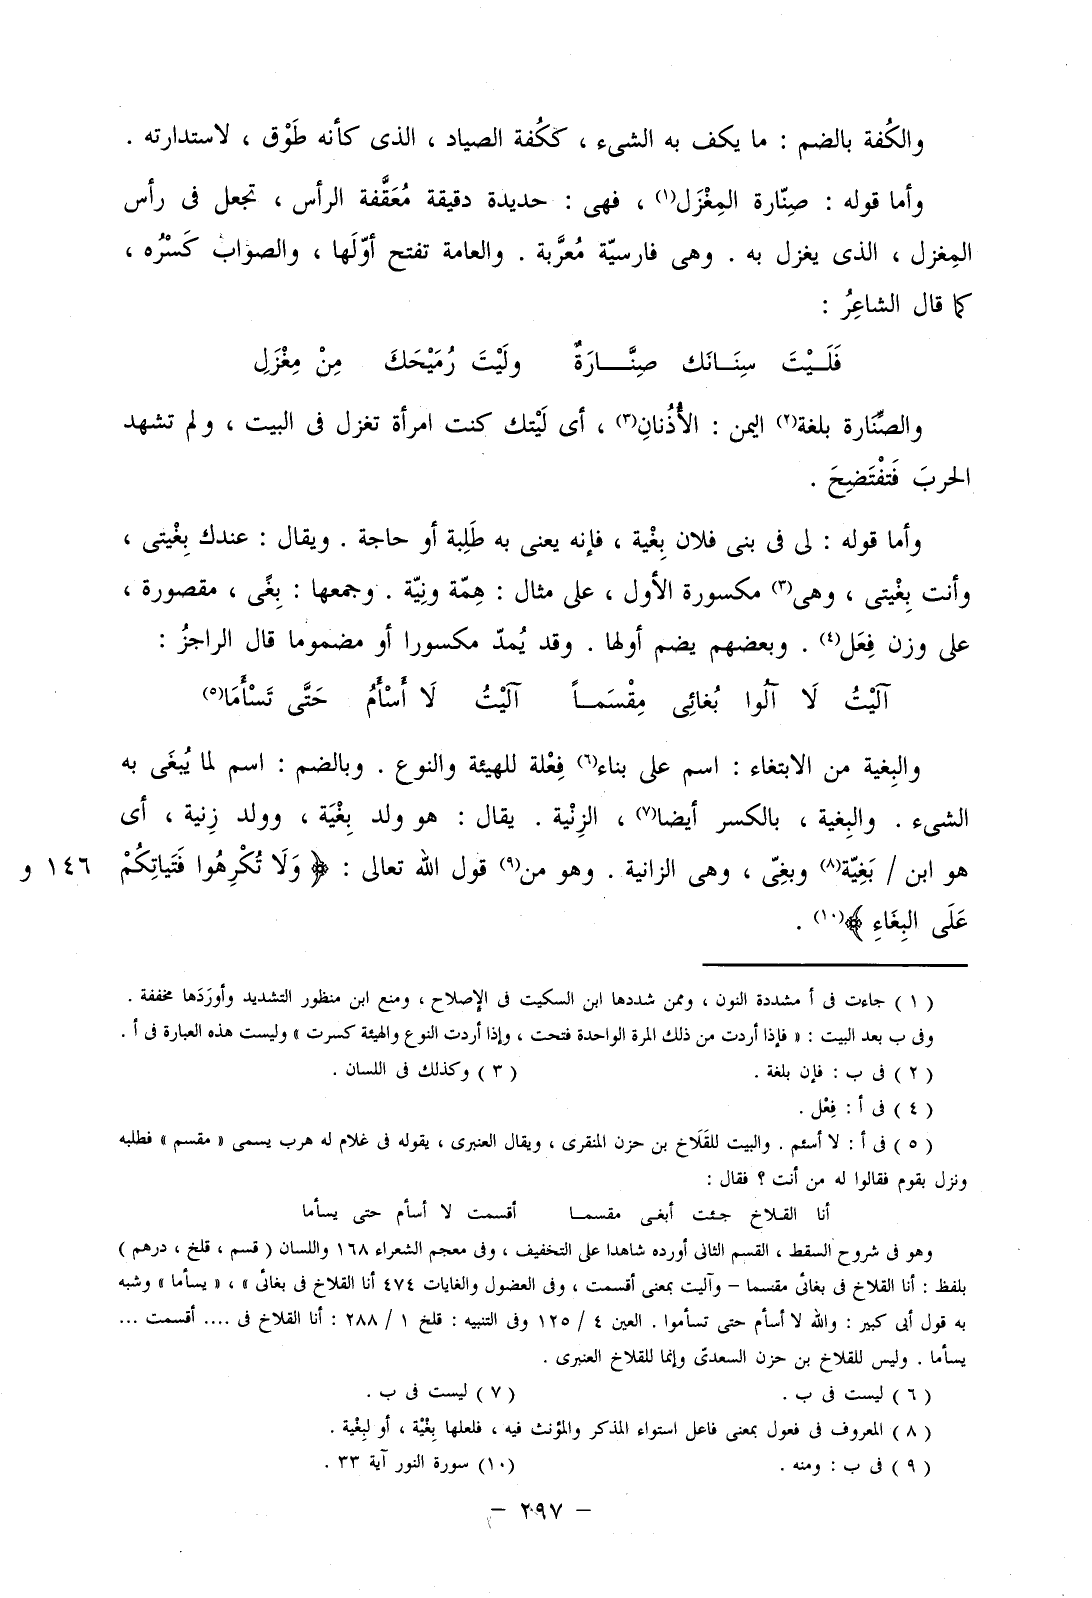 والكُفة بالضم : ما يكف به الشىء ، ككُفة الصياد ، الذى كأنه طَوْق ، لاستدارته .
وأما قوله : صِنّارة المِغْزَل(١) ، فهى : حديدة دقيقة مُعَقَّفة الرأس ، تجعل فى رأس
المِغزل ، الذى يغزل به . وهى فارسيّة مُعرَّبة . والعامة تفتح أوّلَها ، والصوابُ كَسْرُه ،
كما قال الشاعِرُ :
فَلَــيْتَ سِنَــانَك صِنَّـــارَةٌ ولَيْتَ رُمَيْحَكَ مِنْ مِغْزَلِ
والصِّنَارة بلغة(٢) اليمن : الأُذُنانِ(٣) ، أى لَيْتك كنت امرأة تغزل فى البيت ، ولم تشهد
الحربَ فَتَفْتَضِحَ .
وأما قوله : لى فى بنى فلان بِغْية ، فإنه يعنى به طَلِبة أو حاجة . ويقال : عندك بِغْيتى ،
وأنت بِغْيتى ، وهى(٣) مكسورة الأول ، على مثال : هِمّة ونِيّة . وجمعها : بِغًى ، مقصورة ،
على وزن فِعَل(٤) . وبعضهم يضم أولها . وقد يُمدّ مكسورا أو مضموما قال الراجزُ :
آلَيْتُ لَا آلُوا بُغائِى مِقْسَمــاً آلَيْتُ لَا أَسْأَمُ حَتَّى تَسْأَمَا(٥)
والبِغية من الابتغاء : اسم على بناء(٦) فِعْلة للهيئة والنوع . وبالضم : اسم لما يُبغَى به
الشىء . والبِغية ، بالكسر أيضا(٧) ، الزِنْية . يقال : هو ولد بِغْيَة ، وولد زِنية ، أى
هو ابن / بَغِيّة(٨) وبغِىّ ، وهى الزانية . وهو من(٩) قول الله تعالى : ﴿ وَلَا تُكْرِهُوا فَتَياتِكُمْ ١٤٦ و
عَلَى البِغَاءِ ﴾(١٠) .
( ١ ) جاءت فى أ مشددة النون ، وممن شددها ابن السكيت فى الإصلاح ، ومنع ابن منظور التشديد وأورَدَها مخففة .
وفى ب بعد البيت : « فإذا أردت من ذلك المرة الواحدة فتحت ، وإذا أردت النوع والهيئة كسرت » وليست هذه العبارة فى أ .
( ٢ ) فى ب : فإن بلغة . ( ٣ ) وكذلك فى اللسان .
( ٤ ) فى أ : فِعْل .
( ٥ ) فى أ : لا أسئم . والبيت للقَلَاخ بن حزن المنقرى ، ويقال العنبرى ، يقوله فى غلام له هرب يسمى « مقسم » فطلبه
ونزل بقوم فقالوا له من أنت ؟ فقال :
أنا القــلاخ جـئت أبغـى مقسمــا أقسمت لا أسأم حتى يسأما
وهو فى شروح السقط ، القسم الثانى أورده شاهدا على التخفيف ، وفى معجم الشعراء ١٦٨ واللسان ( قسم ، قلخ ، درهم )
بلفظ : أنا القلاخ فى بغائى مقسما – وآليت بمعنى أقسمت ، وفى العضول والغايات ٤٧٤ أنا القلاخ فى بغائى » ، « يسأما » وشبه
به قول أبى كبير : والله لا أسأم حتى تسأموا . العين ٤ / ١٢٥ وفى التنبيه : قلخ ١ / ٢٨٨ : أنا القلاخ فى .... أقسمت ...
يسأما . وليس للقلاخ بن حزن السعدىّ وإنما للقلاخ العنبرى .
( ٦ ) ليست فى ب . ( ٧ ) ليست فى ب .
( ٨ ) المعروف فى فعول بمعنى فاعل استواء المذكر والمؤنث فيه ، فلعلها بِغْيَة ، أو لبِغْية .
( ٩ ) فى ب : ومنه . (١٠) سورة النور آية ٣٣ .
– ٢٩٧ –